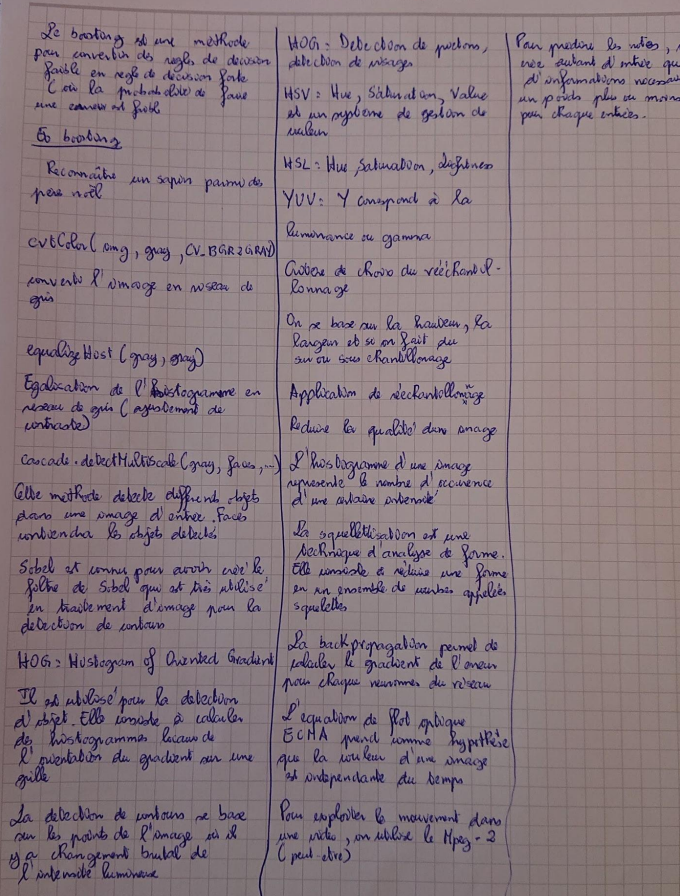 Le boosting est une méthode
pour convertir des regles de décision
faible en regle de décision forte
(où la probabilité de faire
une erreur est faible
Ex boosting
Reconnaître un sapin parmi des
pere noël
cvtColor(img, gray, CV_BGR2GRAY)
converti l'image en niveau de
gris
equalizeHist(gray, gray)
Egalisation de l'histogramme en
niveau de gris (ajustement de
contraste)
cascade.detectMultiscale(gray, faces, ...)
Cette methode detecte différents objets
dans une image d'entrée. Faces
contiendra les objets detectés
Sobel est connu pour avoir créé le
filtre de Sobel qui est très utilisé
en traitement d'image pour la
detection de contours
HOG: Histogram of Oriented Gradient
Il est utilisé pour la detection
d'objet. Elle consiste à calculer
des histogrammes locaux de
l'orientation du gradient sur une
grille
La detection de contours se base
sur les points de l'image où il
y a changement brutal de
l'intensité lumineuse
HOG: Detection de pietons,
detection de visages
HSV: Hue, Saturation, Value
est un système de gestion de
couleur
HSL: Hue, Saturation, Lightness
YUV: Y correspond à la
luminance ou gamma
Critere de choix du rééchantil-
lonnage
On se base sur la hauteur, la
largeur et si on fait du
sur ou sous echantillonage
Application de réechantillonage
Reduire la qualité d'une image
L'histogramme d'une image
represente le nombre d'occurence
d'une certaine intensité
La squelettisation est une
technique d'analyse de forme.
Elle consiste à réduire une forme
en un ensemble de courbes appelées
squelettes
La backpropagation permet de
calculer le gradient de l'erreur
pour chaque neurones du réseau
L'equation de flot optique
ECMA prend comme hypothèse
que la couleur d'une image
est independante du temps
Pour exploiter le mouvement dans
une vidéo, on utilise le Mpeg-2
(peut-etre)
Pour predire les notes,
créé autant d'entrée que
d'informations
un poids plus ou moins
pour chaque entrées.